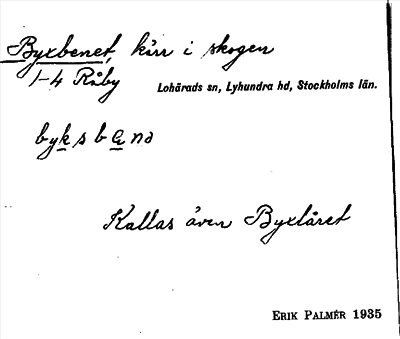 Byxbenet, kärr i skogen
1-4 Råby
Lohärads sn, Lyhundra hd, Stockholms län.
Kallas även Byxlåret
ERIK PALMÉR 1935